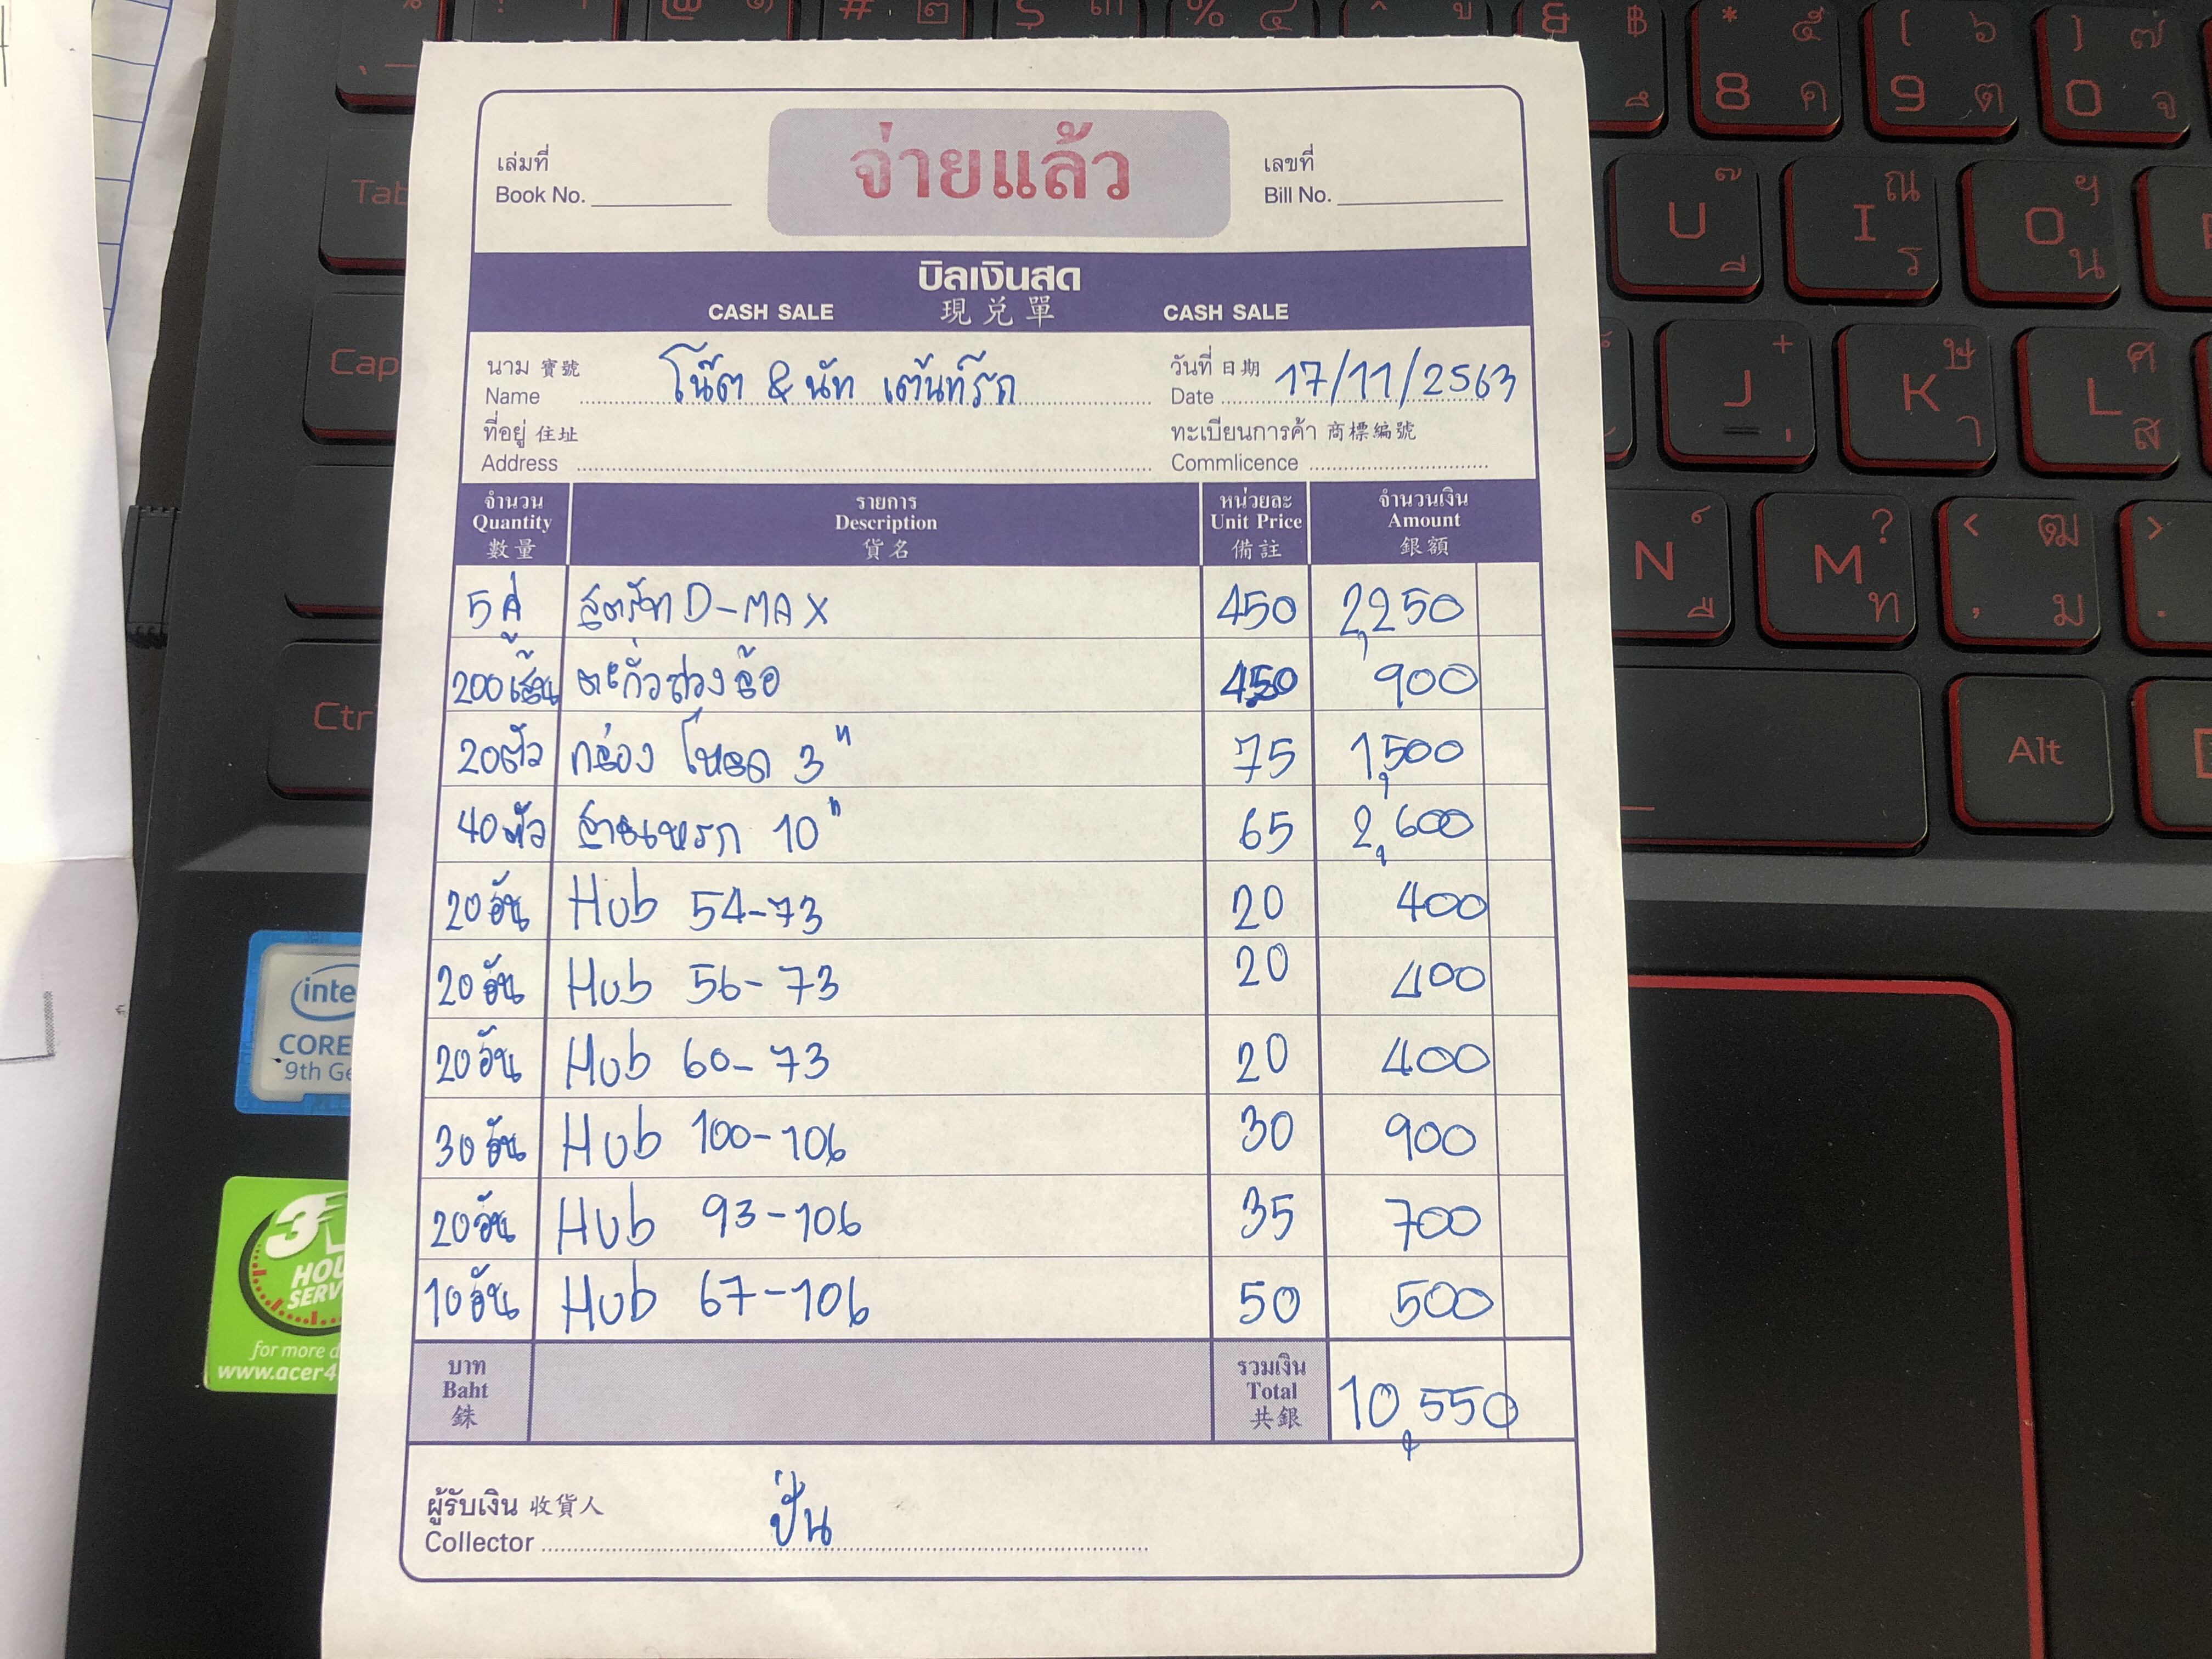 จ่ายแล้ว
เล่มที่
Book No.
เลขที่
Bill No.
บิลเงินสด
CASH SALE 現兌單 CASH SALE
นาม 寶號
Name โน๊ต & นัท เต้นท์รถ
วันที่ 日期
Date 17/11/2563
ที่อยู่ 住址
Address
ทะเบียนการค้า 商標編號
Commlicence
จำนวน รายการ หน่วยละ จำนวนเงิน
Quantity Description Unit Price Amount
數量 貨名 備註 銀額
5 คู่ สตรัท D-MAX 450 2,250
200 เส้น ตะกั่วถ่วงล้อ 4.50 900
20 ตัว กล่องโหลด 3" 75 1,500
40 ตัว สายเบรก 10" 65 2,600
20 อัน Hub 54-73 20 400
20 อัน Hub 56-73 20 400
20 อัน Hub 60-73 20 400
30 อัน Hub 100-106 30 900
20 อัน Hub 93-106 35 700
10 อัน Hub 67-106 50 500
บาท
Baht
銖
รวมเงิน
Total
共銀
10,550
ผู้รับเงิน 收貨人
Collector ปั่น
Tab
Cap
Ctr
Alt
8 ค
9 ต
0 จ
U
I ณ ร
O ฯ น
J
K ษ า
L ศ ส
N
M ? ท
ฒ ม
inte
CORE
9th Ge
3
HOU
SERV
for more d
www.acer4